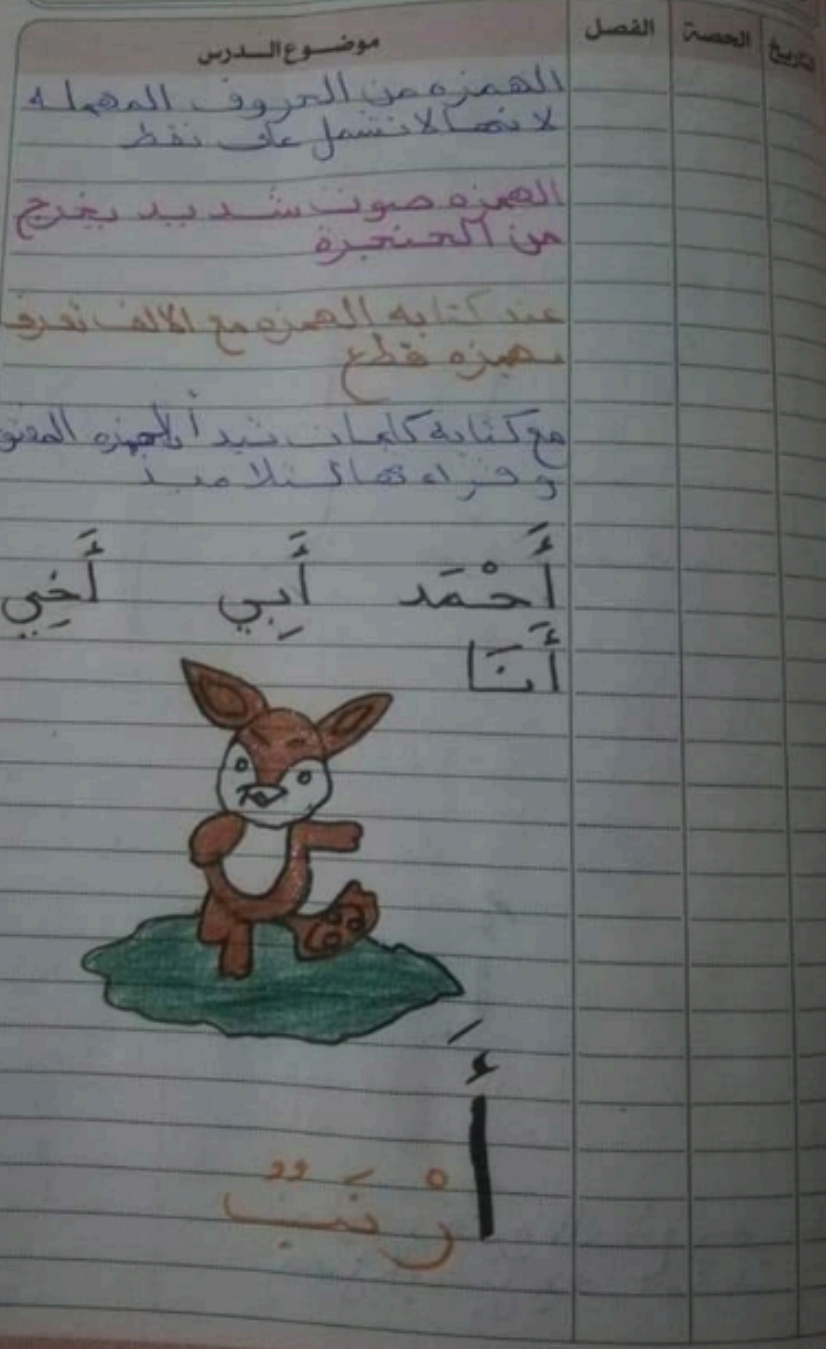 التاريخ الحصة الفصل موضوع الدرس
الهمزه من الحروف المهمله
لانها لا تشمل على نقط
الهمزه صوت شديد يخرج
من الحنجرة
عند كتابه الهمزه مع الالف تعرف
بهمزه قطع
مع كتابه كلمات تبدأ بالهمزه
وقراءتها للتلاميذ
أَحْمَد أَبِي أَخِي
أَنَا
أَرْنَبٌ